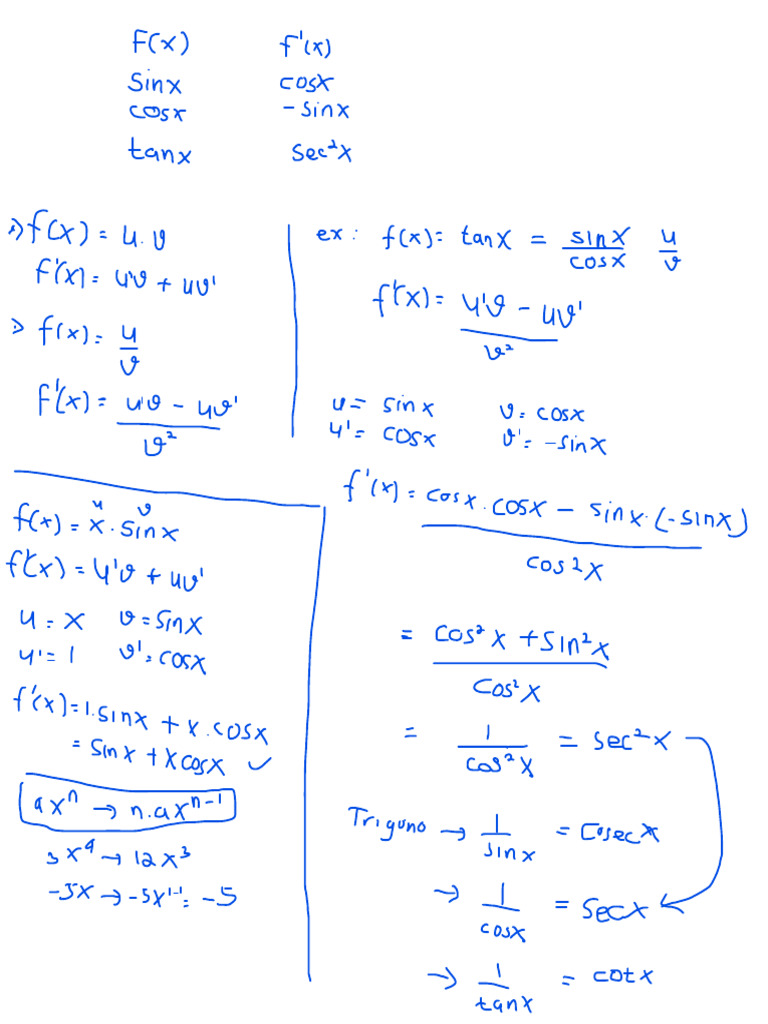 F(x) f'(x)
sinx cosx
cosx -sinx
tanx sec²x
f(x) = u.v
f'(x) = u'v + uv'
f(x) = u/v
f'(x) = (u'v - uv')/v²
ex: f(x) = tanx = sinx/cosx u/v
f'(x) = (u'v - uv')/v²
u = sinx v = cosx
u' = cosx v' = -sinx
f'(x) = (cosx.cosx - sinx.(-sinx))/cos²x
= (cos²x + sin²x)/cos²x
= 1/cos²x = sec²x
Triguno → 1/sinx = cosecx
→ 1/cosx = secx
→ 1/tanx = cotx
u v
f(x) = x.sinx
f'(x) = u'v + uv'
u = x v = sinx
u' = 1 v' = cosx
f'(x) = 1.sinx + x.cosx
= sinx + xcosx ✓
axⁿ → n.axⁿ⁻¹
3x⁴ → 12x³
-5x → -5x¹⁻¹ = -5